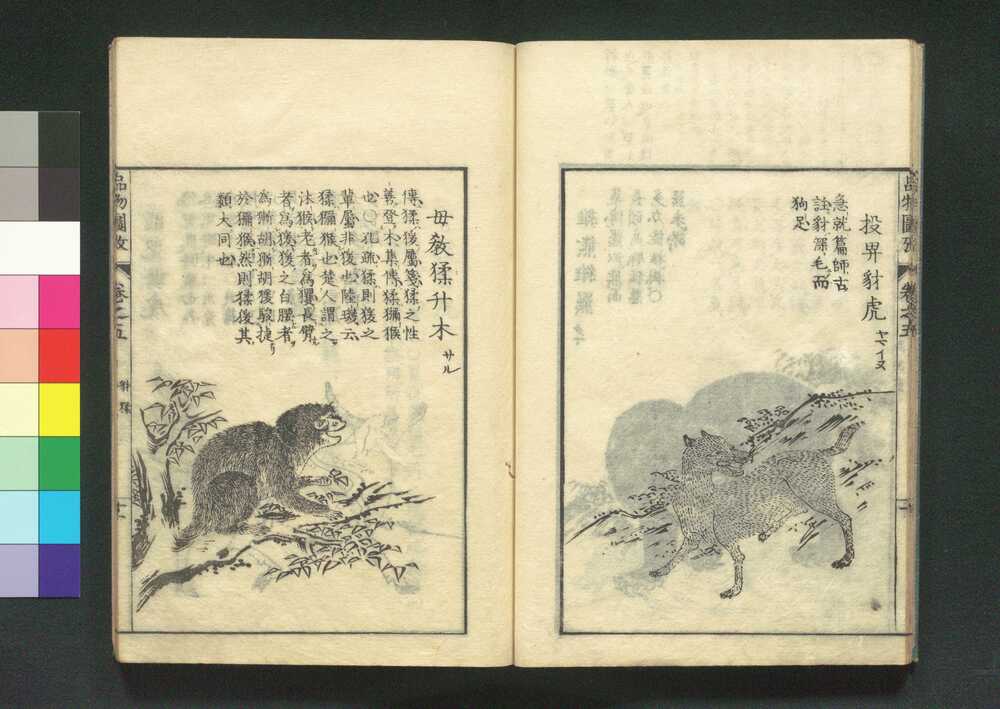 投畀豺虎
ヤマイヌ
急就篇師古
註豺深毛而
狗足
品物圖攷
卷之五
毋教猱升木
サル
傳猱猨屬箋猱之性
善登木集傳猱獼猴
也〇孔疏猱則猨之
輩屬非猨也陸璣云
猱獼猴也楚人謂之
沐猴老者為玃長臂
者為猨猨之白腰者
為獑胡獑胡猨駿捷
於獼猴然則猱猨其
類大同也
品物圖攷
卷之五